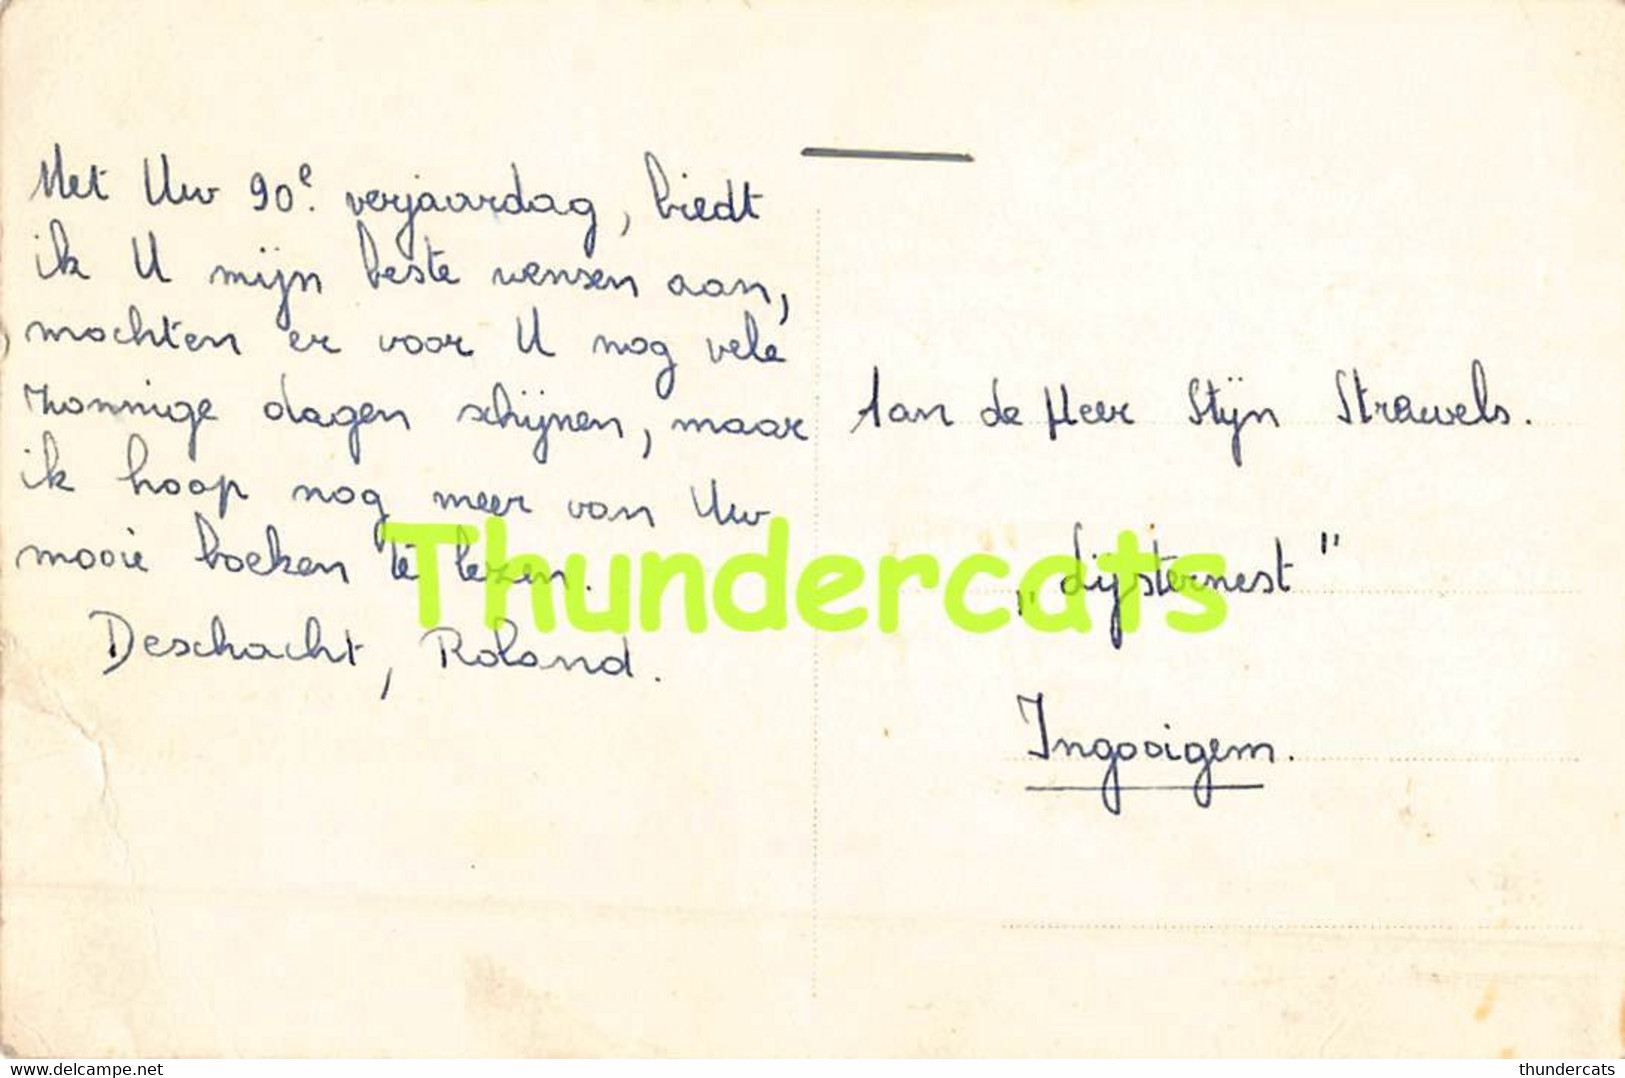 Met Uw 90e. verjaardag, biedt
ik U mijn beste wensen aan,
mochten er voor U nog vele
zonnige dagen schijnen, maar
ik hoop nog meer van Uw
mooie boeken te lezen.
Deschacht, Roland.
Aan de Heer Stijn Streuvels.
„Lijsternest"
Ingooigem.
Thundercats
www.delcampe.net
thundercats